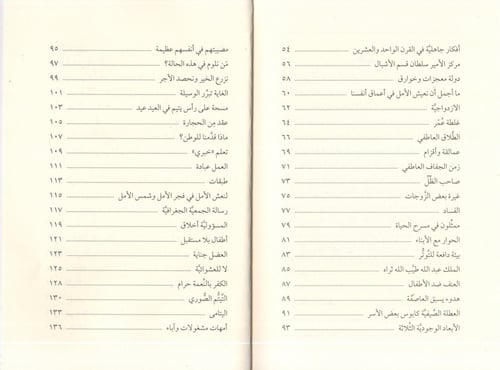 أفكار جاهليَّة في القرن الواحد والعشرين ٥٤
مركز الأمير سلطان قسم الأشبال ٥٦
دولة معجزات وخوارق ٥٨
ما أجمل أن نعيش الأمل في أعماق أنفسنا ٦٠
الازدواجيَّة ٦٢
غلطة عُمُر ٦٤
الطَّلاق العاطفي ٦٦
عمالقة وأقزام ٦٩
زمن الجفاف العاطفي ٧١
صاحب الظِّلِّ ٧٣
غيرة بعض الزَّوجات ٧٥
الفساد ٧٧
ممثِّلون في مسرح الحياة ٧٩
الحوار مع الأبناء ٨١
بيئة دافعة للتَّوتُّر ٨٣
الملك عبد الله طيَّب الله ثراه ٨٥
العنف ضد الأطفال ٨٧
هدوء يسبق العاصفة ٨٩
العطلة الصَّيفيَّة كابوس بعض الأسر ٩١
الأبعاد الوجوديَّة الثَّلاثة ٩٣
مصيبتهم في أنفسهم عظيمة ٩٥
مَن نلوم في هذه الحالة؟ ٩٧
نزرع الخير ونحصد الأجر ٩٩
الغاية تبرِّر الوسيلة ١٠١
مسحة على رأس يتيم في العيد عيد ١٠٣
عقد من الحجارة ١٠٥
ماذا قدَّمنا للوطن؟ ١٠٧
تعلم «خبري» ١٠٩
العمل عبادة ١١١
طبقات ١١٣
لنعش الأمل في فجر الأمل وشمس الأمل ١١٥
رسالة الجمعيَّة الجغرافيَّة ١١٧
المسؤوليَّة أخلاق ١١٩
أطفال بلا مستقبل ١٢١
العضل جناية ١٢٣
لا للعشوائيَّة ١٢٥
الكفر بالنِّعمة حرام ١٢٨
التَّيتُّم الصُّوري ١٣٠
اليتامى ١٣٣
أمهات مشغولات وآباء ١٣٦